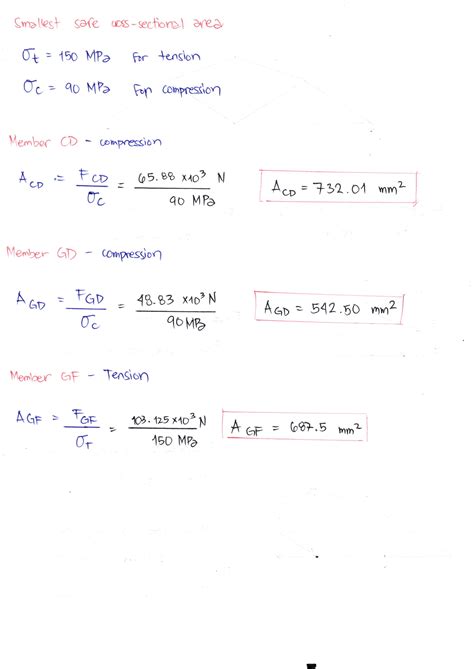 Smallest safe cross-sectional area
σt = 150 MPa for tension
σc = 90 MPa For compression
Member CD - compression
A CD = F CD / σc = 65.88 x10³ N / 90 MPa
A CD = 732.01 mm²
Member GD - compression
A GD = F GD / σc = 48.83 x10³ N / 90 MPa
A GD = 542.50 mm²
Member GF - Tension
A GF = F GF / σT = 103.125 x10³ N / 150 MPa
A GF = 687.5 mm²